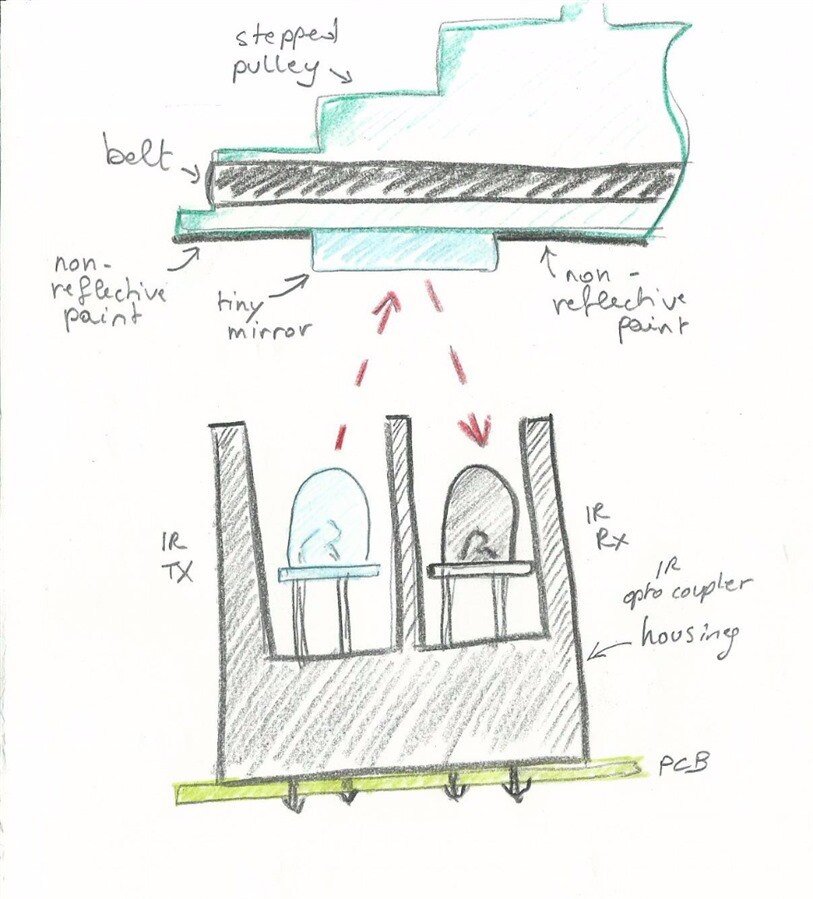 stepped
pulley
belt
non-
reflective
paint
tiny
mirror
non-
reflective
paint
IR
TX
IR
RX
IR
opto coupler
housing
PCB